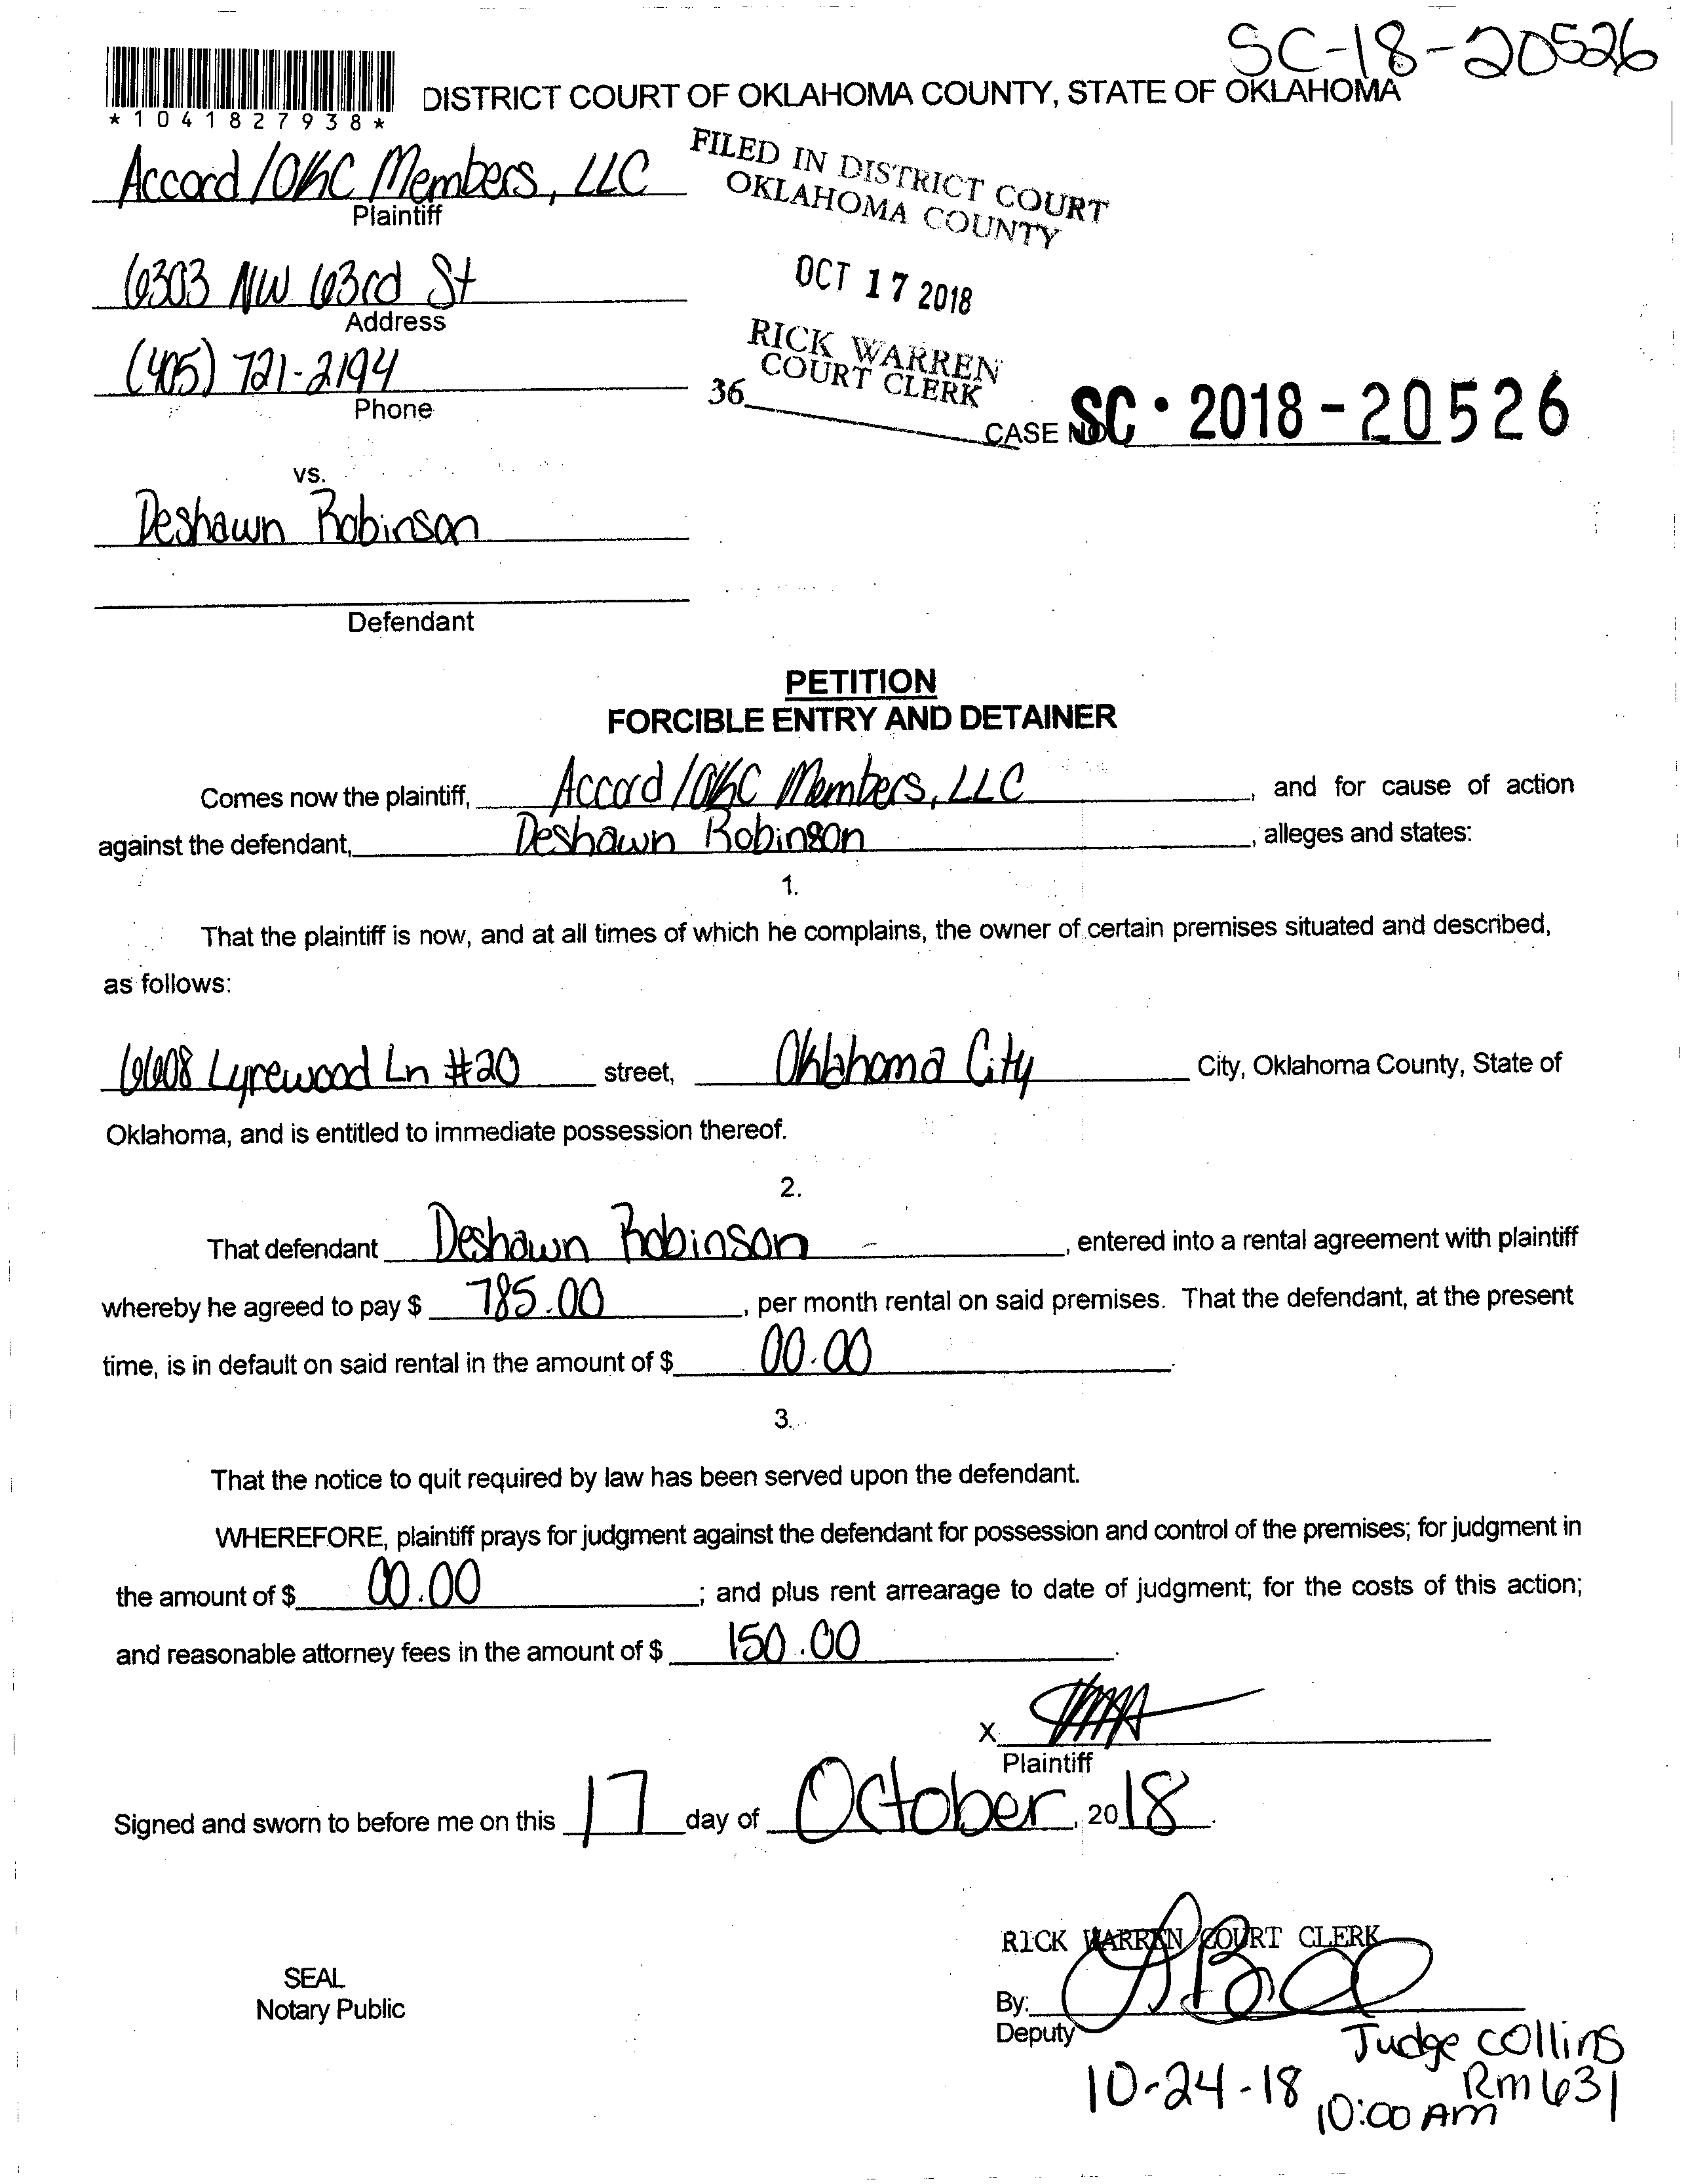 SC-18-20526
*1041827938*
DISTRICT COURT OF OKLAHOMA COUNTY, STATE OF OKLAHOMA
Accord/OKC Members, LLC
Plaintiff
FILED IN DISTRICT COURT
OKLAHOMA COUNTY
6303 NW 63rd St
Address
OCT 17 2018
(405) 721-2194
Phone
RICK WARREN
COURT CLERK
36
CASE NO. SC - 2018 - 20526
vs.
Deshawn Robinson
Defendant
PETITION
FORCIBLE ENTRY AND DETAINER
Comes now the plaintiff, Accord/OKC Members, LLC, and for cause of action
against the defendant, Deshawn Robinson, alleges and states:
1.
That the plaintiff is now, and at all times of which he complains, the owner of certain premises situated and described,
as follows:
6608 Lyrewood Ln #20 street, Oklahoma City City, Oklahoma County, State of
Oklahoma, and is entitled to immediate possession thereof.
2.
That defendant Deshawn Robinson, entered into a rental agreement with plaintiff
whereby he agreed to pay $ 785.00, per month rental on said premises. That the defendant, at the present
time, is in default on said rental in the amount of $ 00.00.
3.
That the notice to quit required by law has been served upon the defendant.
WHEREFORE, plaintiff prays for judgment against the defendant for possession and control of the premises; for judgment in
the amount of $ 00.00; and plus rent arrearage to date of judgment; for the costs of this action;
and reasonable attorney fees in the amount of $ 150.00.
X
Plaintiff
Signed and sworn to before me on this 17 day of October, 2018.
RICK WARREN COURT CLERK
SEAL
Notary Public
By:
Deputy
Judge Collins
10-24-18 Rm 631
10:00 AM